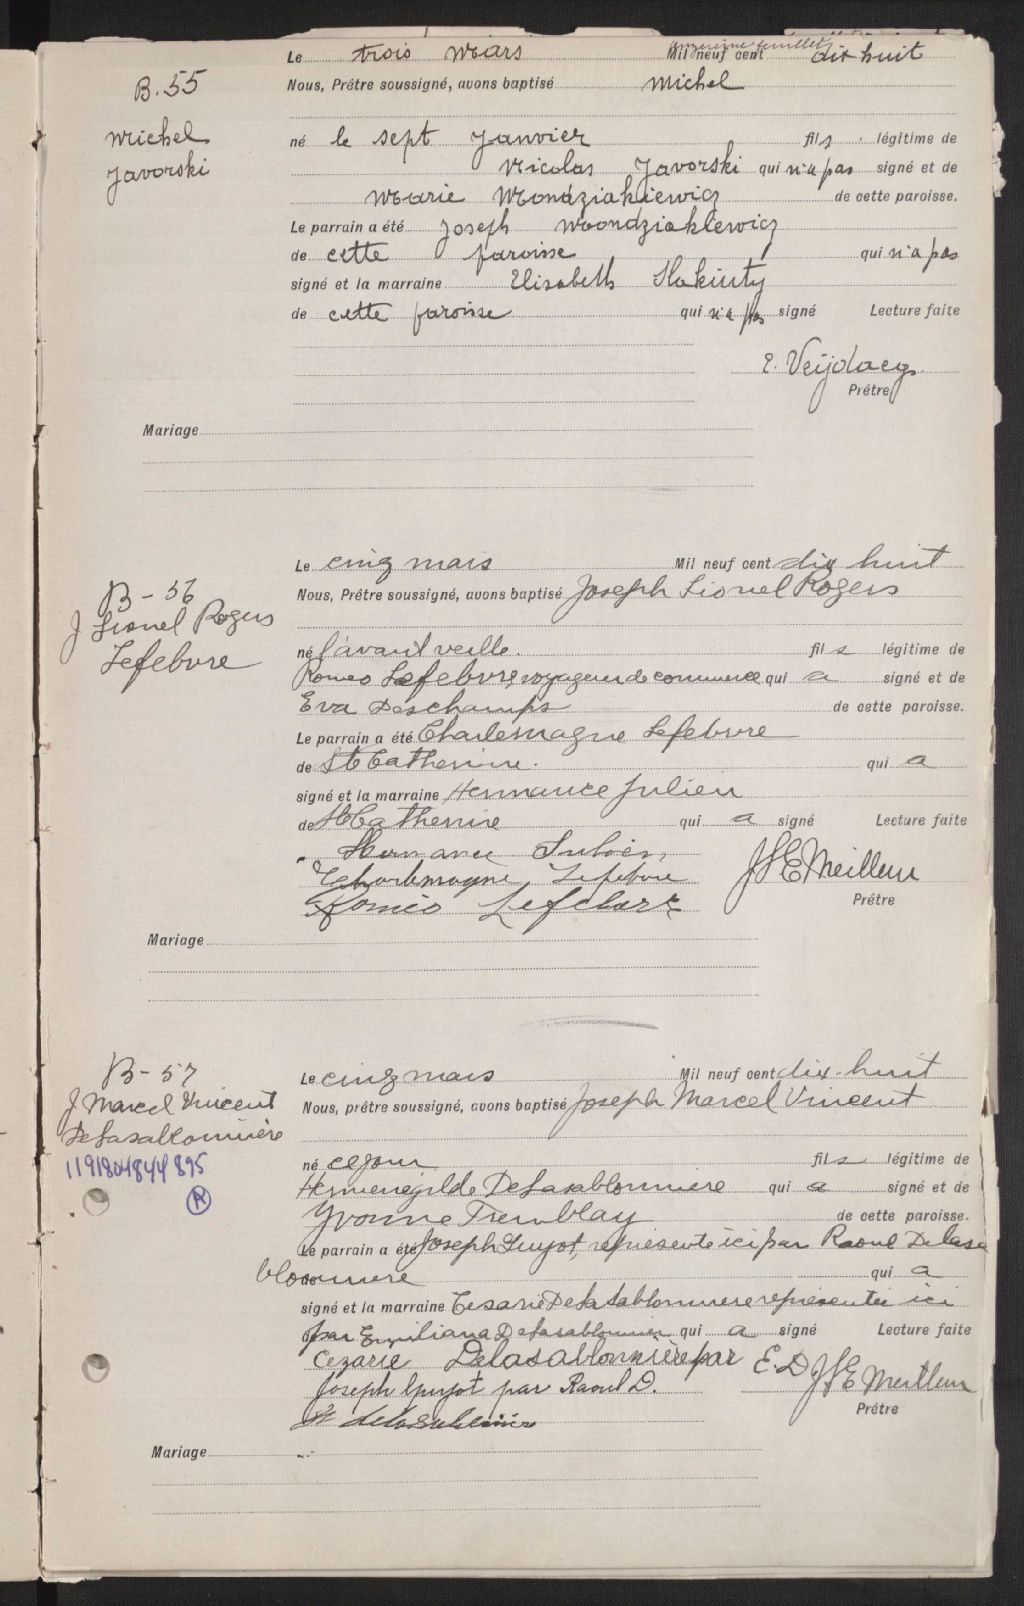 onzième feuillet
Le trois Mars Mil neuf cent dix huit
B. 55
Nous, Prêtre soussigné, avons baptisé Michel
Michel
Javorski
né le sept Janvier fils légitime de
Nicolas Javorski qui n'a pas signé et de
Marie Mondziakiewicz de cette paroisse.
Le parrain a été Joseph Mondziakiewicz
de cette paroisse qui n'a pas
signé et la marraine Elisabeth
de cette paroisse qui n'a pas signé Lecture faite
E. Veijdacq.
Prêtre
Mariage
Le cinq mars Mil neuf cent dix huit
B - 56
Nous, Prêtre soussigné, avons baptisé Joseph Lionel Rogers
J Lionel Rogers
Lefebvre
né l'avant veille. fils légitime de
Romeo Lefebvre, voyageur de commerce qui a signé et de
Eva Deschamps de cette paroisse.
Le parrain a été Charlemagne Lefebvre
de Ste Catherine. qui a
signé et la marraine Hermance Julien
de Ste Catherine qui a signé Lecture faite
Hermance Julien,
Charlemagne Lefebvre
Roméo Lefebvre
J H E Meilleur
Prêtre
Mariage
B - 57
Le cinq mars Mil neuf cent dix-huit
J Marcel Vincent
DeLasablonnière
1191804844895
R
Nous, prêtre soussigné, avons baptisé Joseph Marcel Vincent
né ce jour fils légitime de
Hermenegilde DeLasablonniere qui a signé et de
Yvonne Tremblay de cette paroisse.
Le parrain a été Joseph Guyot, représenté ici par Raoul Delasa
blonniere qui a
signé et la marraine Cesarie DeLaSablonniere representée ici
par Emiliana Delasablonniere qui a signé Lecture faite
Cezarie Delasablonnière par E. D.
Joseph Guyot par Raoul D.
H delasablonnière
J H E Meilleur
Prêtre
Mariage